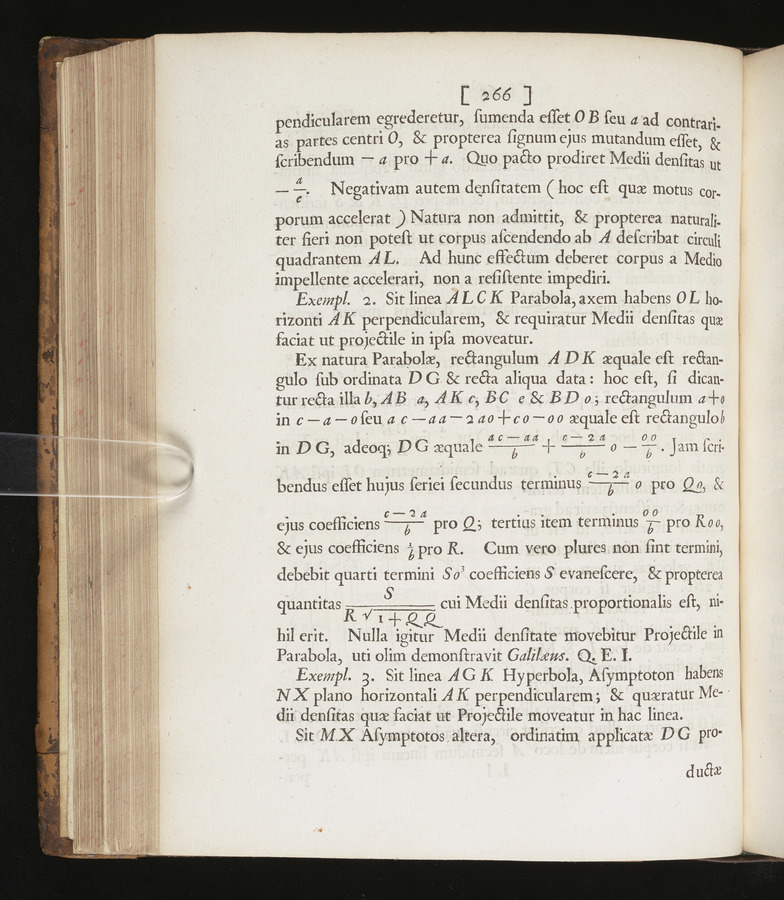 [ 266 ]
pendicularem egrederetur, ſumenda eſſet O B ſeu a ad contrari-
as partes centri O, & propterea ſignum ejus mutandum eſſet, &
ſcribendum — a pro + a. Quo pacto prodiret Medii denſitas ut
— a/e. Negativam autem denſitatem ( hoc eſt quæ motus cor-
porum accelerat ) Natura non admittit, & propterea naturali-
ter fieri non poteſt ut corpus aſcendendo ab A deſcribat circuli
quadrantem A L. Ad hunc effectum deberet corpus a Medio
impellente accelerari, non a reſiſtente impediri.
Exempl. 2. Sit linea A L C K Parabola, axem habens O L ho-
rizonti A K perpendicularem, & requiratur Medii denſitas quæ
faciat ut projectile in ipſa moveatur.
Ex natura Parabolæ, rectangulum A D K æquale eſt rectan-
gulo ſub ordinata D G & recta aliqua data : hoc eſt, ſi dican-
tur recta illa b, A B a, A K c, B C e & B D o ; rectangulum a + o
in c — a — o ſeu a c — a a — 2 a o + c o — o o æquale eſt rectangulo b
in D G, adeoq; D G æquale (a c — a a)/b + (c — 2 a)/b o — (o o)/b. Jam ſcri-
bendus eſſet hujus ſeriei ſecundus terminus (c — 2 a)/b o pro Q o, &
ejus coefficiens (c — 2 a)/b pro Q ; tertius item terminus (o o)/b pro R o o,
& ejus coefficiens 1/b pro R. Cum vero plures non ſint termini,
debebit quarti termini S o³ coefficiens S evaneſcere, & propterea
quantitas S/(R √ 1 + Q Q) cui Medii denſitas proportionalis eſt, ni-
hil erit. Nulla igitur Medii denſitate movebitur Projectile in
Parabola, uti olim demonſtravit Galilæus. Q. E. I.
Exempl. 3. Sit linea A G K Hyperbola, Aſymptoton habens
N X plano horizontali A K perpendicularem ; & quæratur Me-
dii denſitas quæ faciat ut Projectile moveatur in hac linea.
Sit M X Aſymptotos altera, ordinatim applicatæ D G pro-
ductæ